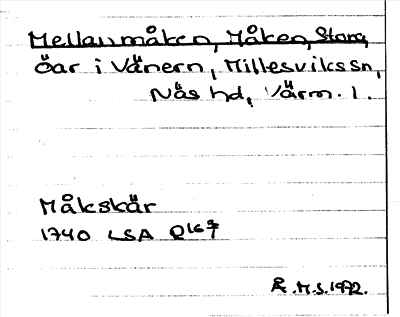 Mellanmåken, Måken, Stora,
öar i Vänern, Millesvikssn,
Näs hd, Värm. l.
Måkskär
1740 LSA Q16:7
R.M.S. 1972.